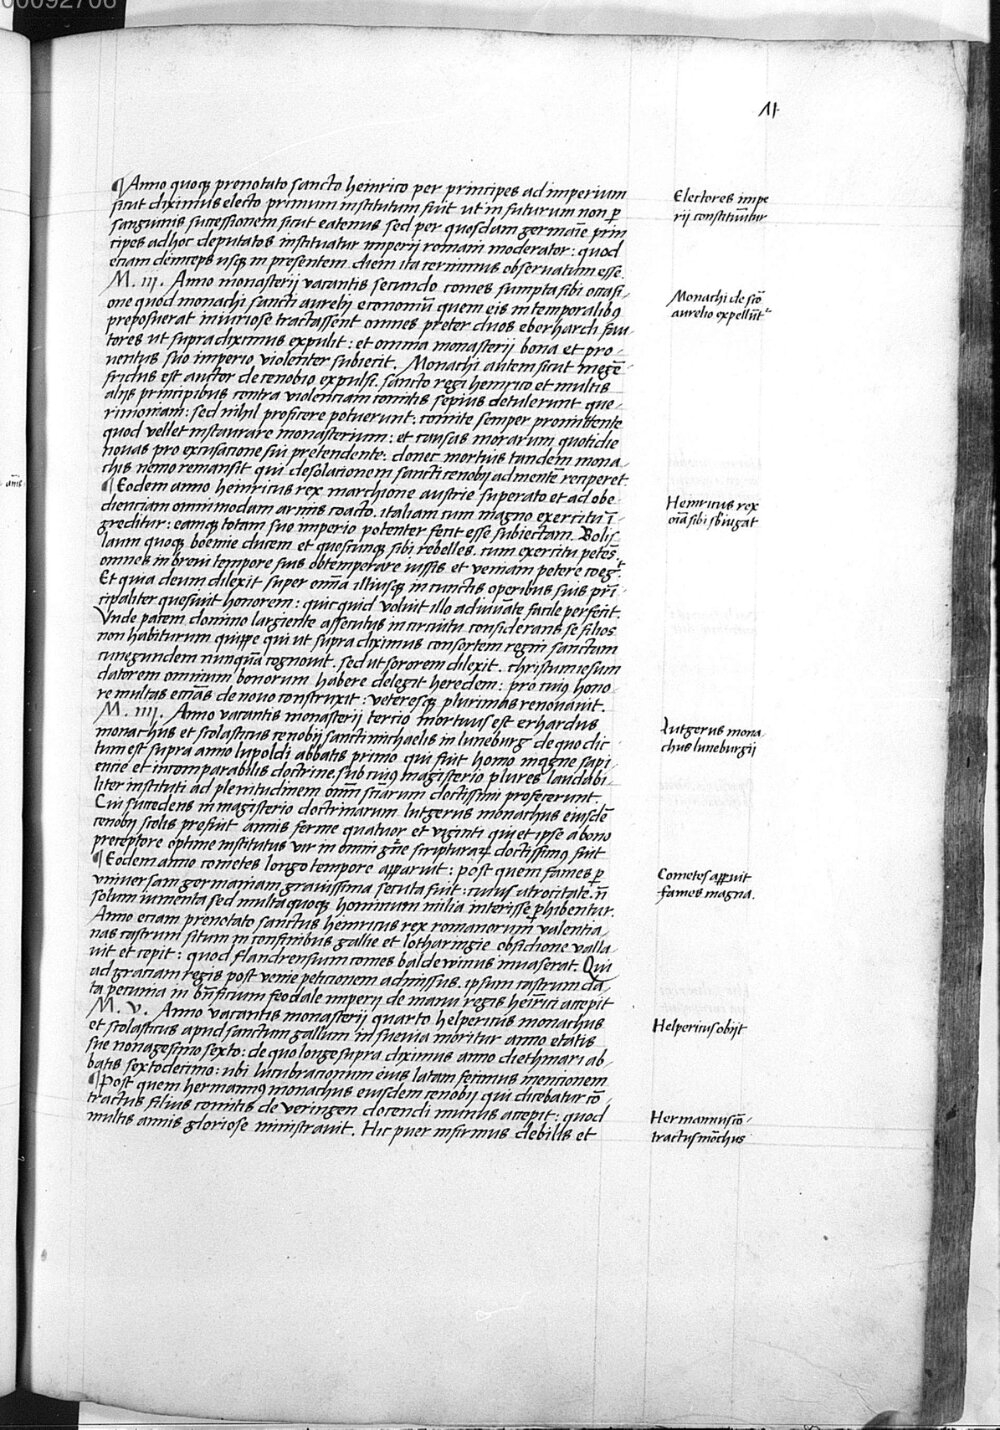 00092706
41
¶ Anno quoqꝫ prenotato sancto heinrico per principes ad imperium
sicut diximus electo primum institutum fuit ut in futurum non ꝑ
sanguinis successionem sicut eatenus sed per quosdam germanie prin
cipes ad hoc deputatos instituatur imperij romani moderator: quod
eciam deinceps usqꝫ in presentem diem ita cernimus obseruatum esse
M. iii. Anno monasterij vacantis secundo comes sumpta sibi occasi-
one quod monachi sancti aurelij economū quem eis in temporalibꝰ
preposuerat iniuriose tractassent omnes preter duos eberhardi fau-
tores ut supra diximus expulit: et omnia monasterij bona et pro-
uentus suo imperio violenter subiecit. Monachi autem sicut megē-
fridus est auctor de cenobio expulsi. sancto regi henrico et multis
alijs principibus contra violenciam comitis sepius detulerunt que-
rimoniam: sed nihil proficere potuerunt: comite semper promittente
quod vellet instaurare monasterium: et causas morarum quotidie
nouas pro excusacione sui pretendente: donec mortuis tandem mona-
chis nemo remansit qui desolacionem sancti cenobij ad mentē reciperet.
¶ Eodem anno heinricus rex marchione austrie superato et ad obe-
dienciam omnimodam armis coacto. italiam cum magno exercitu ī-
greditur: eamqꝫ totam suo imperio potenter fecit esse subiectam. Bolis-
laum quoqꝫ boemie ducem et quoscunqꝫ sibi rebelles. cum exercitu petēs
omnes in breui tempore suis obtemperare iussis et veniam petere coegᵗ.
Et quia deum dilexit super omnia illiusqꝫ in cunctis operibus suis prī-
cipaliter quesiuit honorem: quicquid voluit illo adiuuāte facile perfecit.
Vnde pacem domino largiente assecutus in circuitu considerans se filios
non habiturum quippe qui ut supra diximus consortem regni sanctam
cunegundem nunquā cognouit. sed ut sororem dilexit. christum iesum
datorem omnium bonorum habere delegit heredem: pro cuiꝰ hono-
re multas ecciās de nouo construxit: veteresqꝫ plurimas renouauit.
M. iiii. Anno vacantis monasterij tercio mortuus est erhardus
monachus et scolasticus cenobij sancti michaelis in luneburg de quo dic-
tum est supra anno lupoldi abbatis primo qui fuit homo magne sapi-
encie et incomparabilis doctrine. sub cuiꝰ magisterio plures laudabi-
liter instituti ad plenitudinem omnī sciarum doctissimi profecerunt.
Cui succedens in magisterio doctrinarum lutgerus monachus eiusdē
cenobij scolis prefuit annis ferme quatuor et viginti qui et ipse a bono
preceptore optime institutus vir in omni gn̄e scripturaꝝ doctissimꝰ fuit
¶ Eodem anno cometes longo tempore apparuit: post quem fames ꝑ
vniuersam germaniam grauissima secuta fuit: cuius atrocitate. n̄
solum iumenta sed multa quoqꝫ hominum milia interisse ꝑhibentur.
Anno eciam prenotato sanctus heinricus rex romanorum valentia-
nas castrum situm in confinibus gallie et lotharingie obsidione valla-
uit et cepit: quod flandrensium comes baldewinus inuaserat. Qui
ad graciam regis post venie peticionem admissus. ipsum castrum da-
ta pecunia in bn̄ficium feodale imperij de manu regis heinrici accepit
M. v. Anno vacantis monasterij quarto helpericus monachus
et scolasticus apud sanctum gallum in sueuia moritur anno etatis
sue nonagesimo sexto: de quo longe supra diximus anno diethmari ab-
batis sextodecimo: ubi lucubracionum eius latam fecimus mencionem
¶ Post quem hermannꝰ monachus eiusdem cenobij qui dicebatur cō-
tractus filius comitis de veringen docendi munus accepit: quod
multis annis gloriose ministrauit. Hic puer infirmus debilis et
Electores impe
rij constituūtur
Monachi de scō
aurelio expellūtᵘʳ
Heinricus rex
oīa sibi sbiugat
Lutgerus mona
chus luneburgij
Cometes apparuit
fames magna.
Helpericus obijt
Hermannus cō-
tractus mōchus